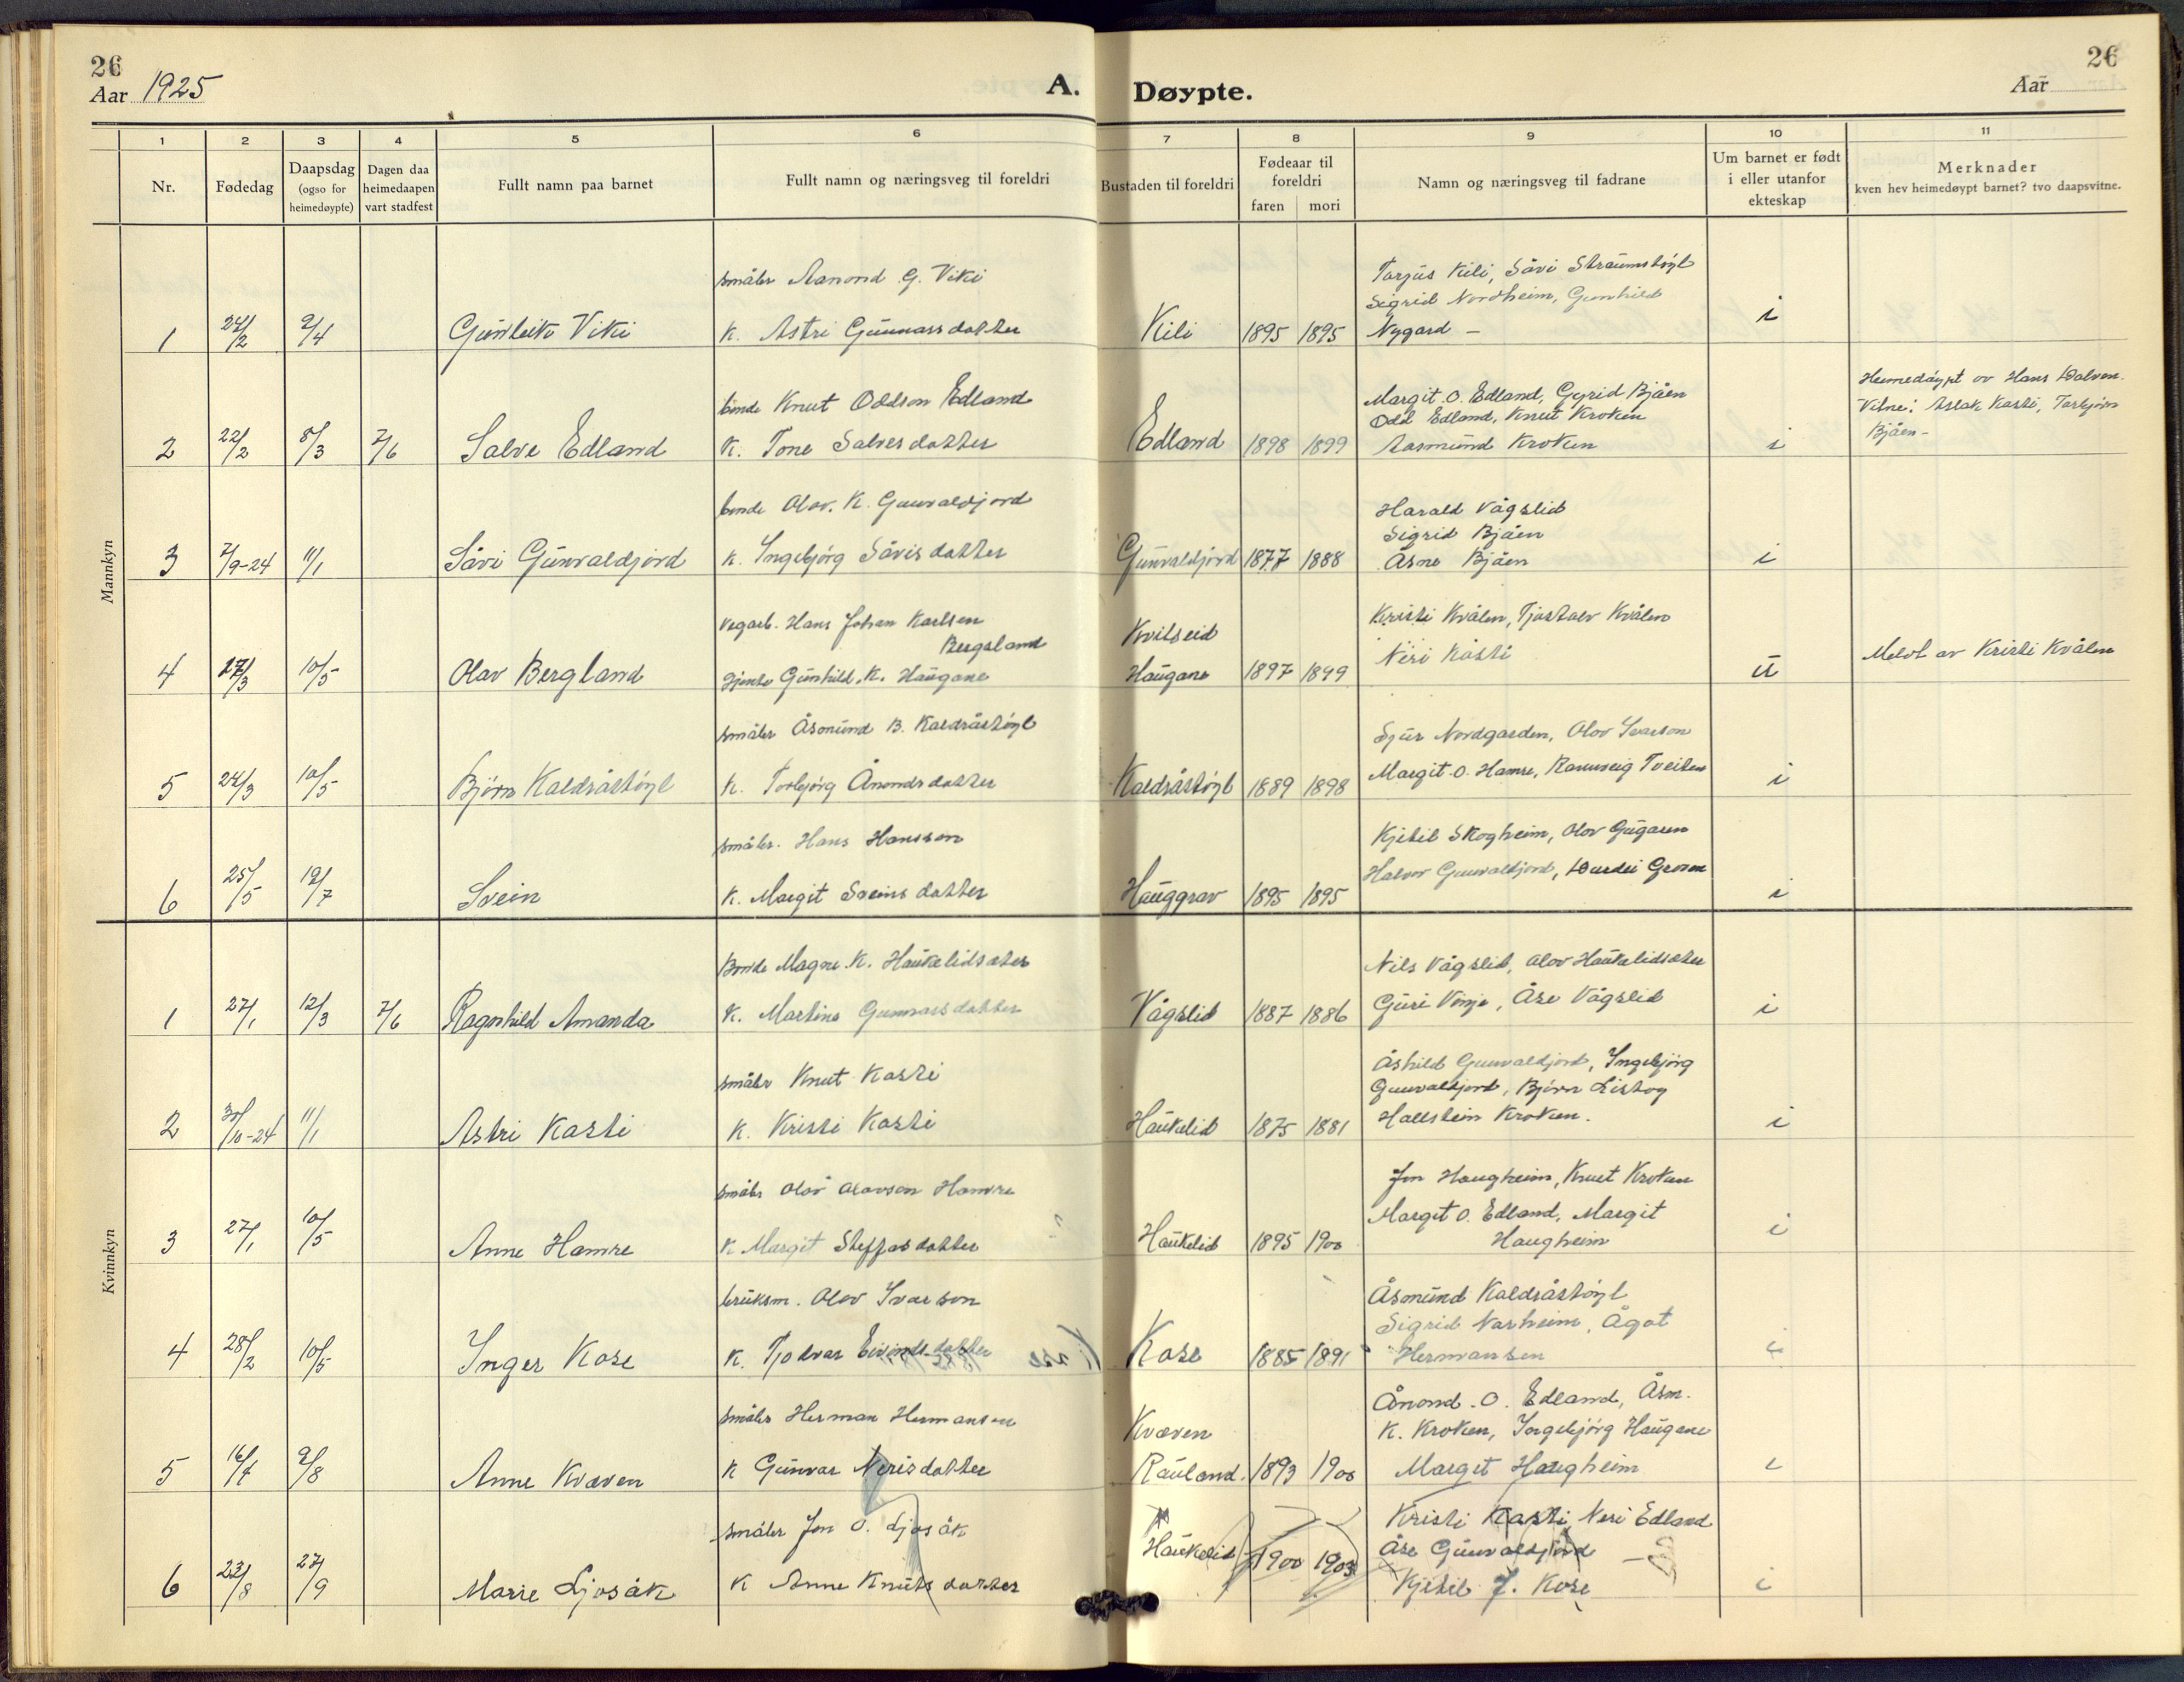 26
Aar 1925
A.
Døypte.
26
Aar
1 2 3 4 5 6 7 8 9 10 11
Nr.
Fødedag
Daapsdag
(ogso for
heimedøypte)
Dagen daa
heimedaapen
vart stadfest
Fullt namn paa barnet
Fullt namn og næringsveg til foreldri
Bustaden til foreldri
Fødeaar til
foreldri
faren mori
Namn og næringsveg til fadrane
Um barnet er født
i eller utanfor
ekteskap
Merknader
kven hev heimedøypt barnet? tvo daapsvitne.
Mannkyn
småbr Aanond G. Viki
Tarjus Kili, Såvi Straumstøyl
Sigrid Nordheim, Gunhild
1 24/2 9/4 Gunleik Viki K. Astri Gunnarsdotter Kili 1895 1895 Nygard – i
bonde Knut Oddson Edland
Margit O. Edland, Gyrid Bjåen
Odd Edland, Knut Kroken
Heimedøypt av Hans Dalven.
Vitne: Aslak Kasti, Torbjørn
Bjåen –
2 22/2 8/3 7/6 Salve Edland K. Tone Salvesdotter Edland 1898 1899 Aasmund Kroken i
bonde Olav. K. Gunvaldjord
Harald Vågslid
Sigrid Bjåen
3 7/9-24 11/1 Såvi Gunvaldjord K. Ingebjørg Såvisdotter Gunvaldjord 1877 1888 Åsne Bjåen i
vegarb. Hans Johan Karlsen
Bergsland
Kviteseid
Kristi Kvålen, Tjostolv Kvålen
4 27/3 10/5 Olav Bergland gjente Gunhild. K. Haugane Haugane 1897 1899 Neri Kasti u Meldt av Kristi Kvålen
småbr Åsmund B. Kaldråstøyl
Sjur Nordgarden, Olov Ivarson
5 24/3 10/5 Bjørn Kaldråstøyl K. Torbjørg Ånondsdotter Kaldråstøyl 1889 1898 Margit O. Hamre, Rannveig Tveiten i
småbr. Hans Hansson
Kjetil Skogheim, Olov Gugaren
Halvor Gunvaldjord,
6 25/5 19/7 Svein K. Margit Sveinsdotter Hauggrav 1895 1895 i
Kvinnkyn
Bonde Magne K. Haukelidsæter
Nils Vågslid, Olov Haukelidsæter
1 27/1 12/3 7/6 Ragnhild Amanda K. Martine Gunnarsdotter Vågslid 1887 1886 Guri Vinje, Åse Vågslid i
småbr Knut Kasti
Åshild Gunvaldjord, Ingebjørg
Gunvaldjord, Bjørn Listog
2 30/10-24 11/1 Astri Kasti K. Kristi Kasti Haukelid 1875 1881 Hallstein Kroken. i
småbr Olov Olavson Hamre
Jon Haugheim, Knut Kroken
Margit O. Edland, Margit
3 27/1 10/5 Anne Hamre K Margit Steffasdotter Haukelid 1895 1900 Haugheim i
bruksm. Olov Ivarson
Åsmund Kaldråstøyl
Sigrid Norheim, Ågot
4 28/2 10/5 Inger Kose K. Tjodvar Eivindsdotter Kose 1885 1891 Hermansen i
småbr Herman Hermansen
Kvæven
Ånond. O. Edland, Åsm.
K. Kroken, Ingebjørg Haugane
5 16/4 9/8 Anne Kvæven K Gunvor Nerisdotter Rauland. 1893 1900 Margit Haugheim i
småbr Jon O. Ljosåk
Kristi Kasti, Neri Edland
Haukelid 1900 1903 Åse Gunvaldjord –
6 23/8 27/9 Marie Ljosåk K Anne Knutsdotter Kjetil J. Kose i